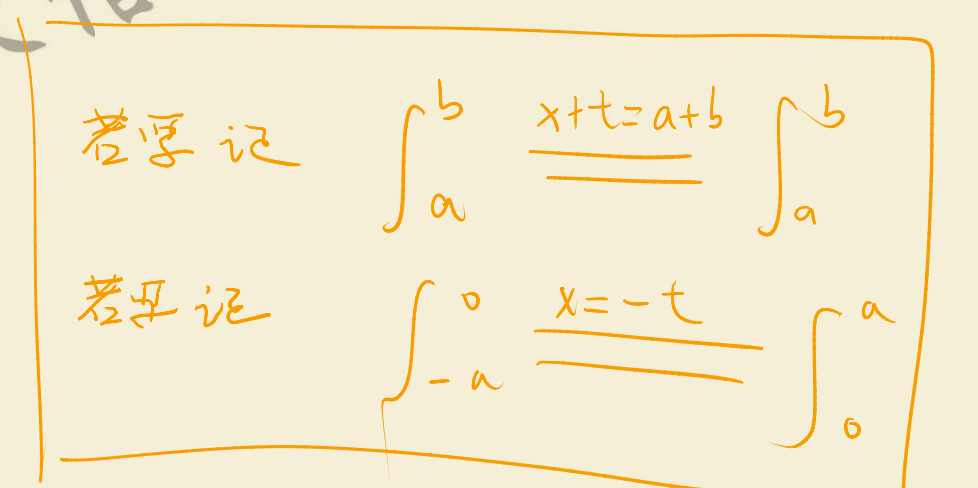 若要记 ∫_a^b x+t=a+b ∫_a^b
若要记 ∫_{-a}^0 x=-t ∫_0^a